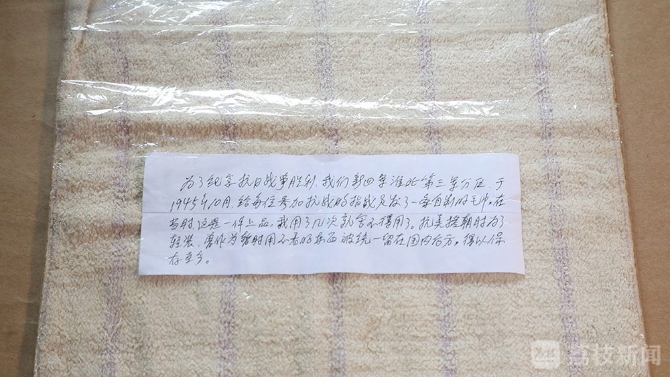 为了纪念抗日战争胜利,我们新四军淮北第三军分区,于
1945年10月给每位参加抗战的指战员发了一条自制的毛巾。在
当时这是一件上品,我用了几次就舍不得用了。抗美援朝时为了
轻装,曾作为暂时用不着的东西被统一留在国内后方,得以保
存至今。
荔枝新闻